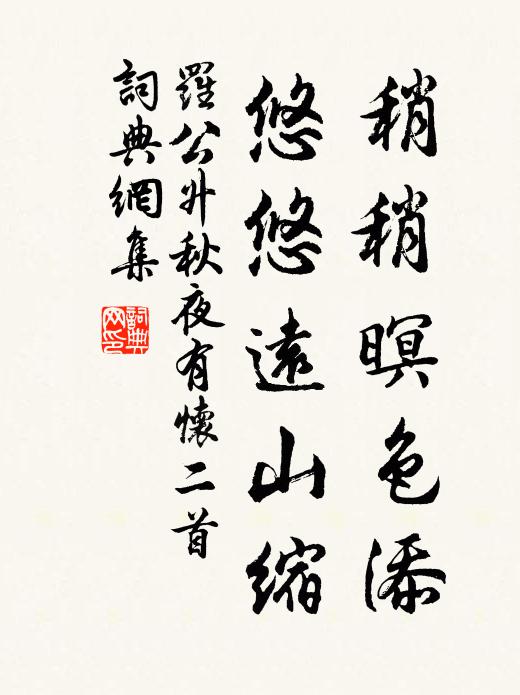 稍稍暝色添
悠悠遠山縮
羅公升秋夜有懷二首
詞典網集
詞典网印